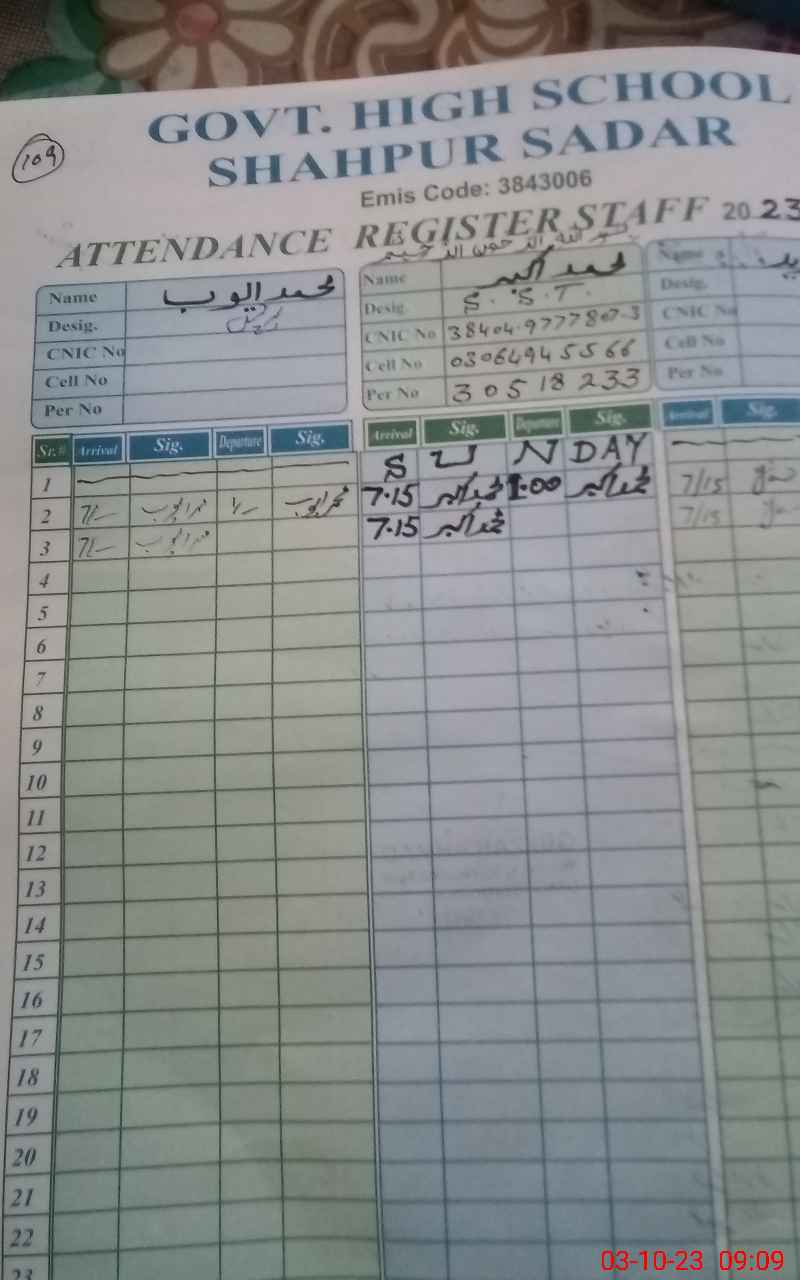 109
GOVT. HIGH SCHOOL
SHAHPUR SADAR
Emis Code: 3843006
ATTENDANCE REGISTER STAFF 2023
Name محمد ایوب
Desig.
CNIC No
Cell No
Per No
Name محمد اکبر
Desig S.S.T.
CNIC No 38404-9777807-3
Cell No 03064945566
Per No 30518233
Name
Desig.
CNIC No
Cell No
Per No
Sr.# Arrival Sig. Departure Sig. Arrival Sig. Departure Sig. Arrival Sig.
1 SUNDAY
2 7/- محمد ایوب 1/- محمد ایوب 7.15 محمد اکبر 1.00 محمد اکبر 7/15
3 7/- محمد ایوب 7.15 محمد اکبر 7/15
4
5
6
7
8
9
10
11
12
13
14
15
16
17
18
19
20
21
22
23
03-10-23 09:09